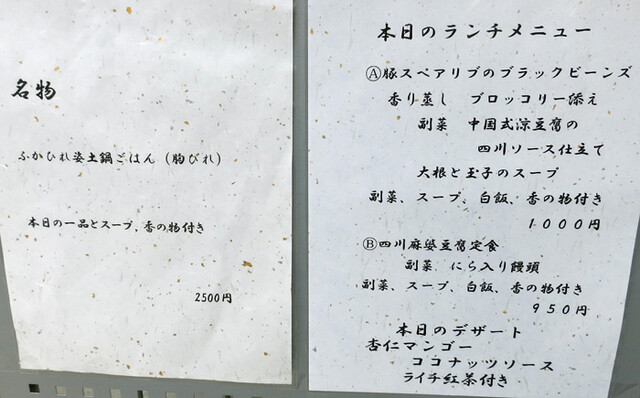 名物
ふかひれ姿土鍋ごはん（胸びれ）
本日の一品とスープ、香の物付き
2500円
本日のランチメニュー
Ⓐ豚スペアリブのブラックビーンズ
香り蒸し　ブロッコリー添え
副菜　中国式涼豆腐の
四川ソース仕立て
大根と玉子のスープ
副菜、スープ、白飯、香の物付き
１０００円
Ⓑ四川麻婆豆腐定食
副菜　にら入り饅頭
副菜、スープ、白飯、香の物付き
９５０円
本日のデザート
杏仁マンゴー
ココナッツソース
ライチ紅茶付き